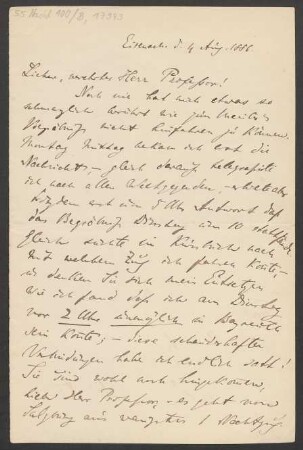 55 Nachl 140/B, 
Eisenach d. 4 Aug. 1886
Lieber, verehrter Herr Professor!
Noch nie hat mich etwas so
schmerzlich berührt wie zum Meisters
Begräbniß nicht hinfahren zu können.
Montag Mittag bekam ich erst die
Nachricht, – gleich darauf telegrafirte
ich nach allen Weltgegenden, – erhielt aber
trotzdem erst um 5 Uhr Antwort daß
das Begräbniß Dienstag um 10 stattfände
Gleich suchte ich im Kursbuche nach
mit welchem Zug ich fahren könnte, –
und denken Sie sich mein Entsetzen
wie ich fand daß ich am Dienstag
vor 2 Uhr unmöglich in Bayreuth
sein könnte; – diese schauderhaften
Verbindungen habe ich endlich satt!
Sie sind wohl auch hingekommen,
lieber Herr Professor – es geht von
Salzburg aus wenigstens 1 Nachtzug